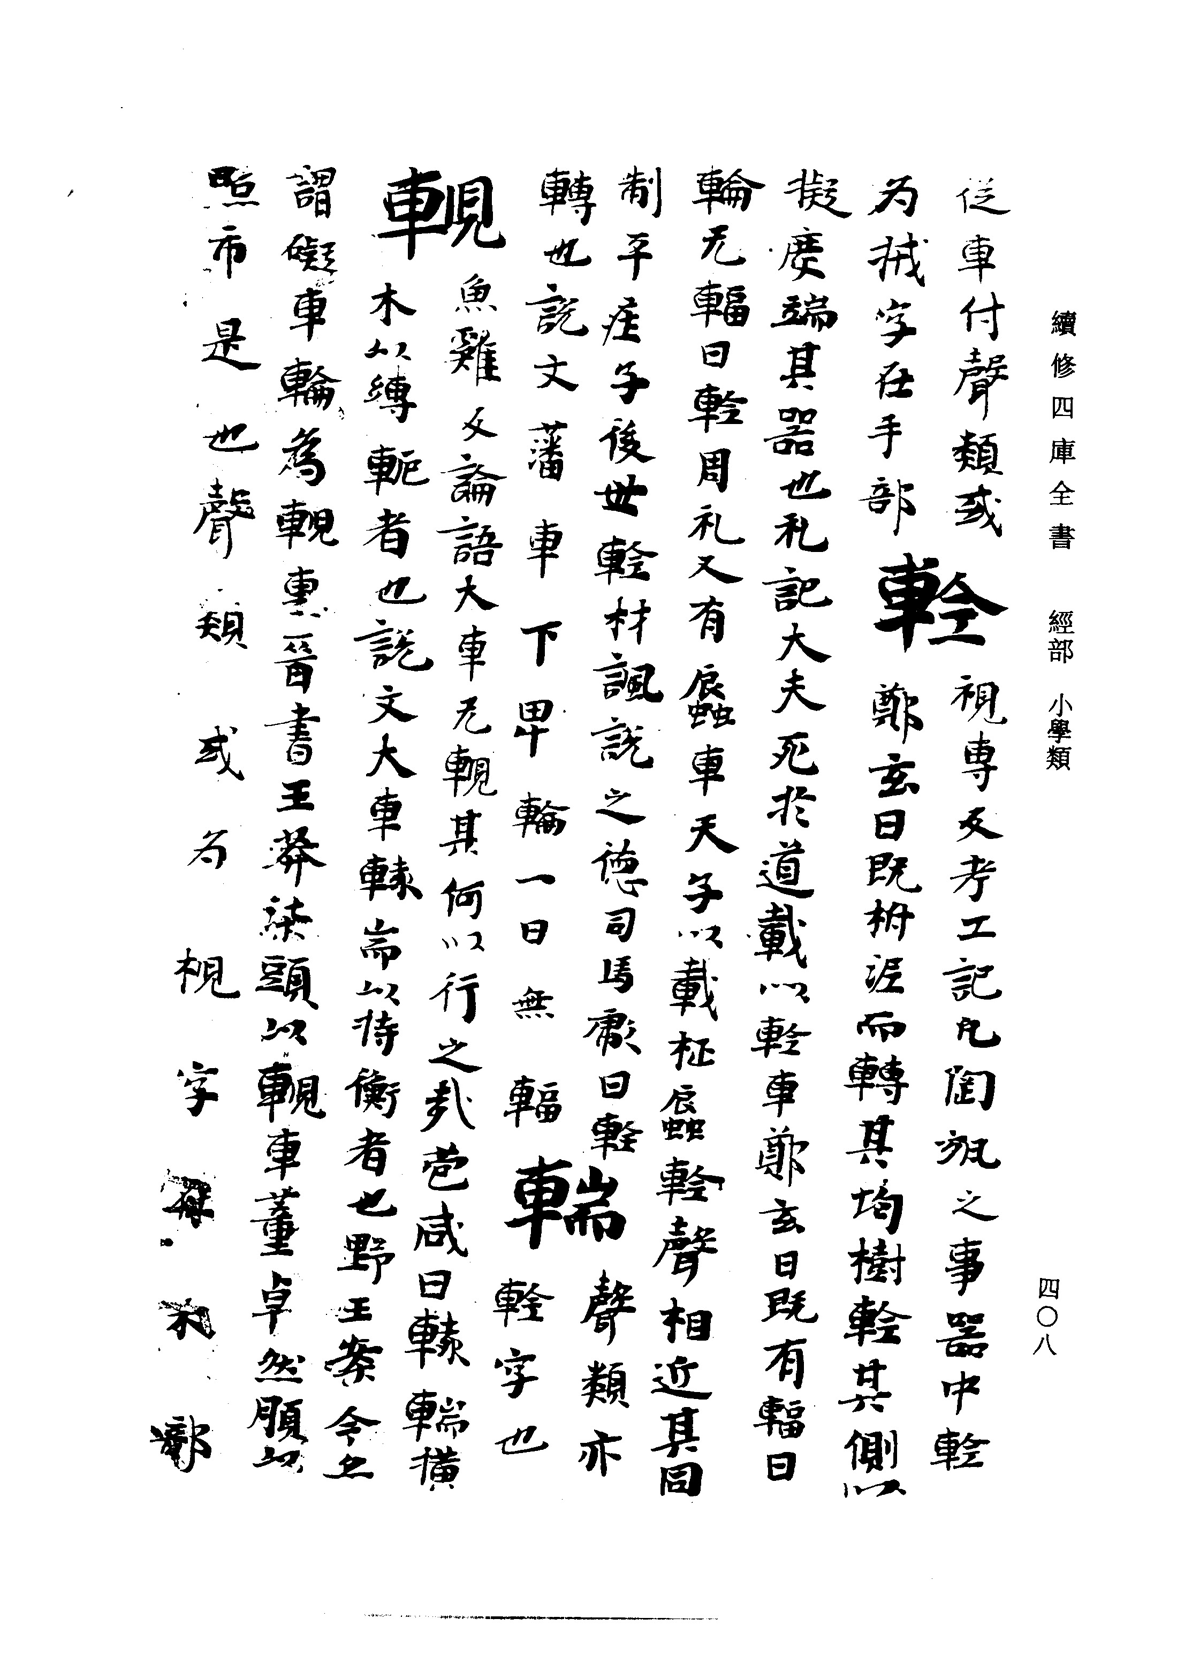 續修四庫全書 經部 小學類
四〇八
從車付聲類或
為拭字在手部 輇 視專反考工記凡陶瓬之事器中輇
鄭玄曰既拊泥而轉其均樹輇其側以
擬度端其器也礼記大夫死於道載以輇車鄭玄曰既有輻曰
輪无輻曰輇周礼又有蜃車天子以載柩蜃輇聲相近其同
制乎庄子後世輇材諷說之德司馬彪曰輇 輲 聲類亦
轉也說文藩車下卑輪一曰無輻 輇字也
輗 魚雞反論語大車无輗其何以行之㦲苞咸曰轅輲橫
木以縛軶者也說文大車轅耑以持衡者也野王案今亦
謂礙車輪為輗惠晉書王莽柒頭以輗車董卓然順以
照市是也聲類或為梘字在木部